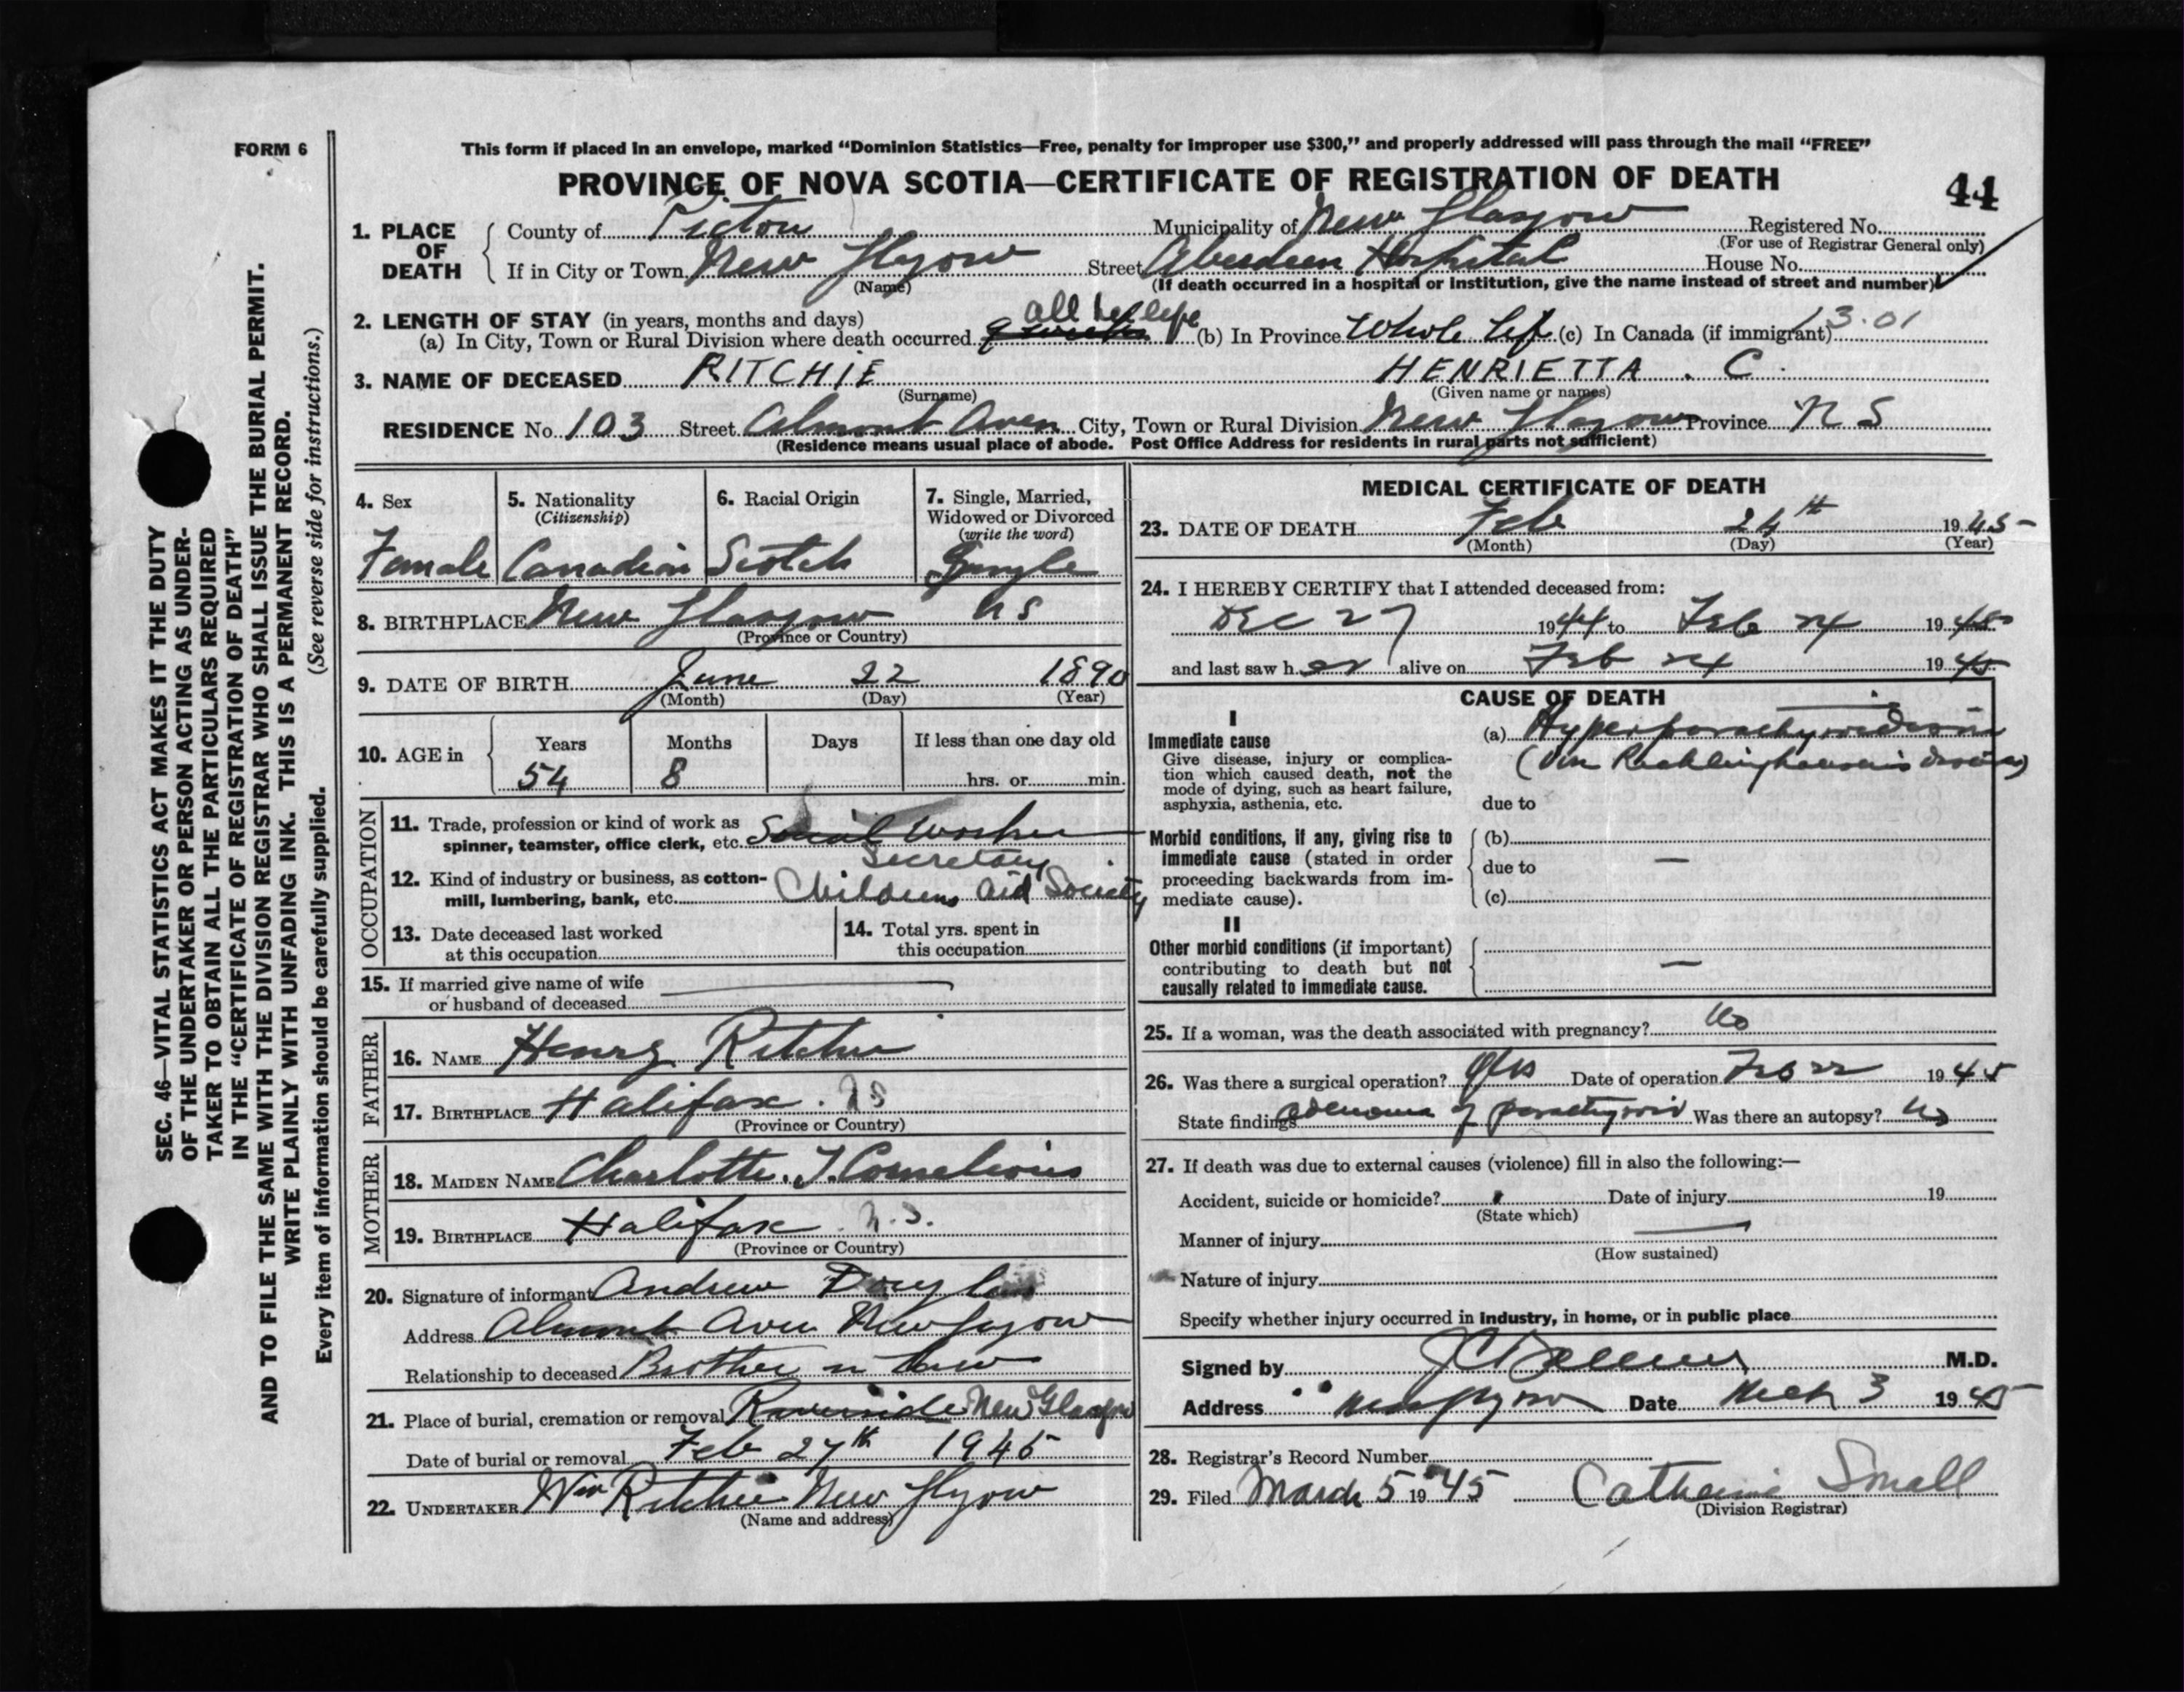 FORM 6
This form if placed in an envelope, marked “Dominion Statistics—Free, penalty for improper use $300,” and properly addressed will pass through the mail “FREE”
PROVINCE OF NOVA SCOTIA—CERTIFICATE OF REGISTRATION OF DEATH
44
1. PLACE OF DEATH
County of Pictou Municipality of New Glasgow Registered No.
(For use of Registrar General only)
If in City or Town New Glgow Street Aberdeen Hospital House No.
(Name) (If death occurred in a hospital or institution, give the name instead of street and number)
2. LENGTH OF STAY (in years, months and days) all her life
(a) In City, Town or Rural Division where death occurred (b) In Province Whole Life (c) In Canada (if immigrant) 3.01
3. NAME OF DECEASED RITCHIE HENRIETTA . C.
(Surname) (Given name or names)
RESIDENCE No. 103 Street Almont Aven City, Town or Rural Division New Glasgow Province N S
(Residence means usual place of abode. Post Office Address for residents in rural parts not sufficient)
4. Sex
Female
5. Nationality
(Citizenship)
Canadian
6. Racial Origin
Scotch
7. Single, Married,
Widowed or Divorced
(write the word)
Single
8. BIRTHPLACE New Glasgow N S
(Province or Country)
9. DATE OF BIRTH June 22 1890
(Month) (Day) (Year)
10. AGE in
Years Months Days If less than one day old
54 8 hrs. or min.
OCCUPATION
11. Trade, profession or kind of work as
spinner, teamster, office clerk, etc. Social Worker
Secretary
12. Kind of industry or business, as cotton-
mill, lumbering, bank, etc. Childrens Aid Society
13. Date deceased last worked
at this occupation
14. Total yrs. spent in
this occupation
15. If married give name of wife
or husband of deceased
FATHER
16. NAME Henry Ritchie
17. BIRTHPLACE Halifax . NS
(Province or Country)
MOTHER
18. MAIDEN NAME Charlotte. J. Cornelious
19. BIRTHPLACE Halifax . N.S.
(Province or Country)
20. Signature of informant Andrew Douglas
Address Almont Aven New Glgow
Relationship to deceased Brother in Law
21. Place of burial, cremation or removal Riverside New Glasgow
Date of burial or removal Feb 27th 1945
22. UNDERTAKER Wm Ritchie New Glgow
(Name and address)
MEDICAL CERTIFICATE OF DEATH
23. DATE OF DEATH Feb 24th 1945
(Month) (Day) (Year)
24. I HEREBY CERTIFY that I attended deceased from:
DEC 27 1944 to Feb 24 1945
and last saw her alive on Feb 24 1945
CAUSE OF DEATH
I
Immediate cause
Give disease, injury or complica-
tion which caused death, not the
mode of dying, such as heart failure,
asphyxia, asthenia, etc.
(a) Hyperparathyroidism
(Von Recklinghausen's disease)
due to
Morbid conditions, if any, giving rise to
immediate cause (stated in order
proceeding backwards from im-
mediate cause).
(b)
due to —
(c)
II
Other morbid conditions (if important)
contributing to death but not
causally related to immediate cause.
—
25. If a woman, was the death associated with pregnancy? No
26. Was there a surgical operation? Yes Date of operation Feb 22 1945
State findings adenoma of parathyroid Was there an autopsy? No
27. If death was due to external causes (violence) fill in also the following:—
Accident, suicide or homicide? Date of injury 19
(State which)
Manner of injury
(How sustained)
Nature of injury
Specify whether injury occurred in industry, in home, or in public place
Signed by M.D.
Address New Glgow Date Mch 3 1945
28. Registrar's Record Number
29. Filed March 5 1945 Catharine Small
(Division Registrar)
SEC. 46—VITAL STATISTICS ACT MAKES IT THE DUTY
OF THE UNDERTAKER OR PERSON ACTING AS UNDER-
TAKER TO OBTAIN ALL THE PARTICULARS REQUIRED
IN THE “CERTIFICATE OF REGISTRATION OF DEATH”
AND TO FILE THE SAME WITH THE DIVISION REGISTRAR WHO SHALL ISSUE THE BURIAL PERMIT.
WRITE PLAINLY WITH UNFADING INK. THIS IS A PERMANENT RECORD.
Every item of information should be carefully supplied. (See reverse side for instructions.)